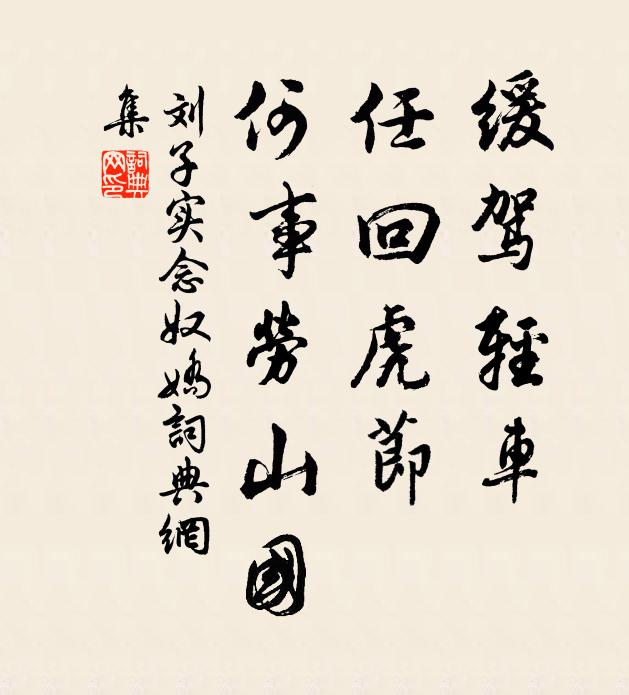 缓驾輕車
任回虎節
何事勞山國
刘子实念奴嬌詞典網
集
詞典
网印